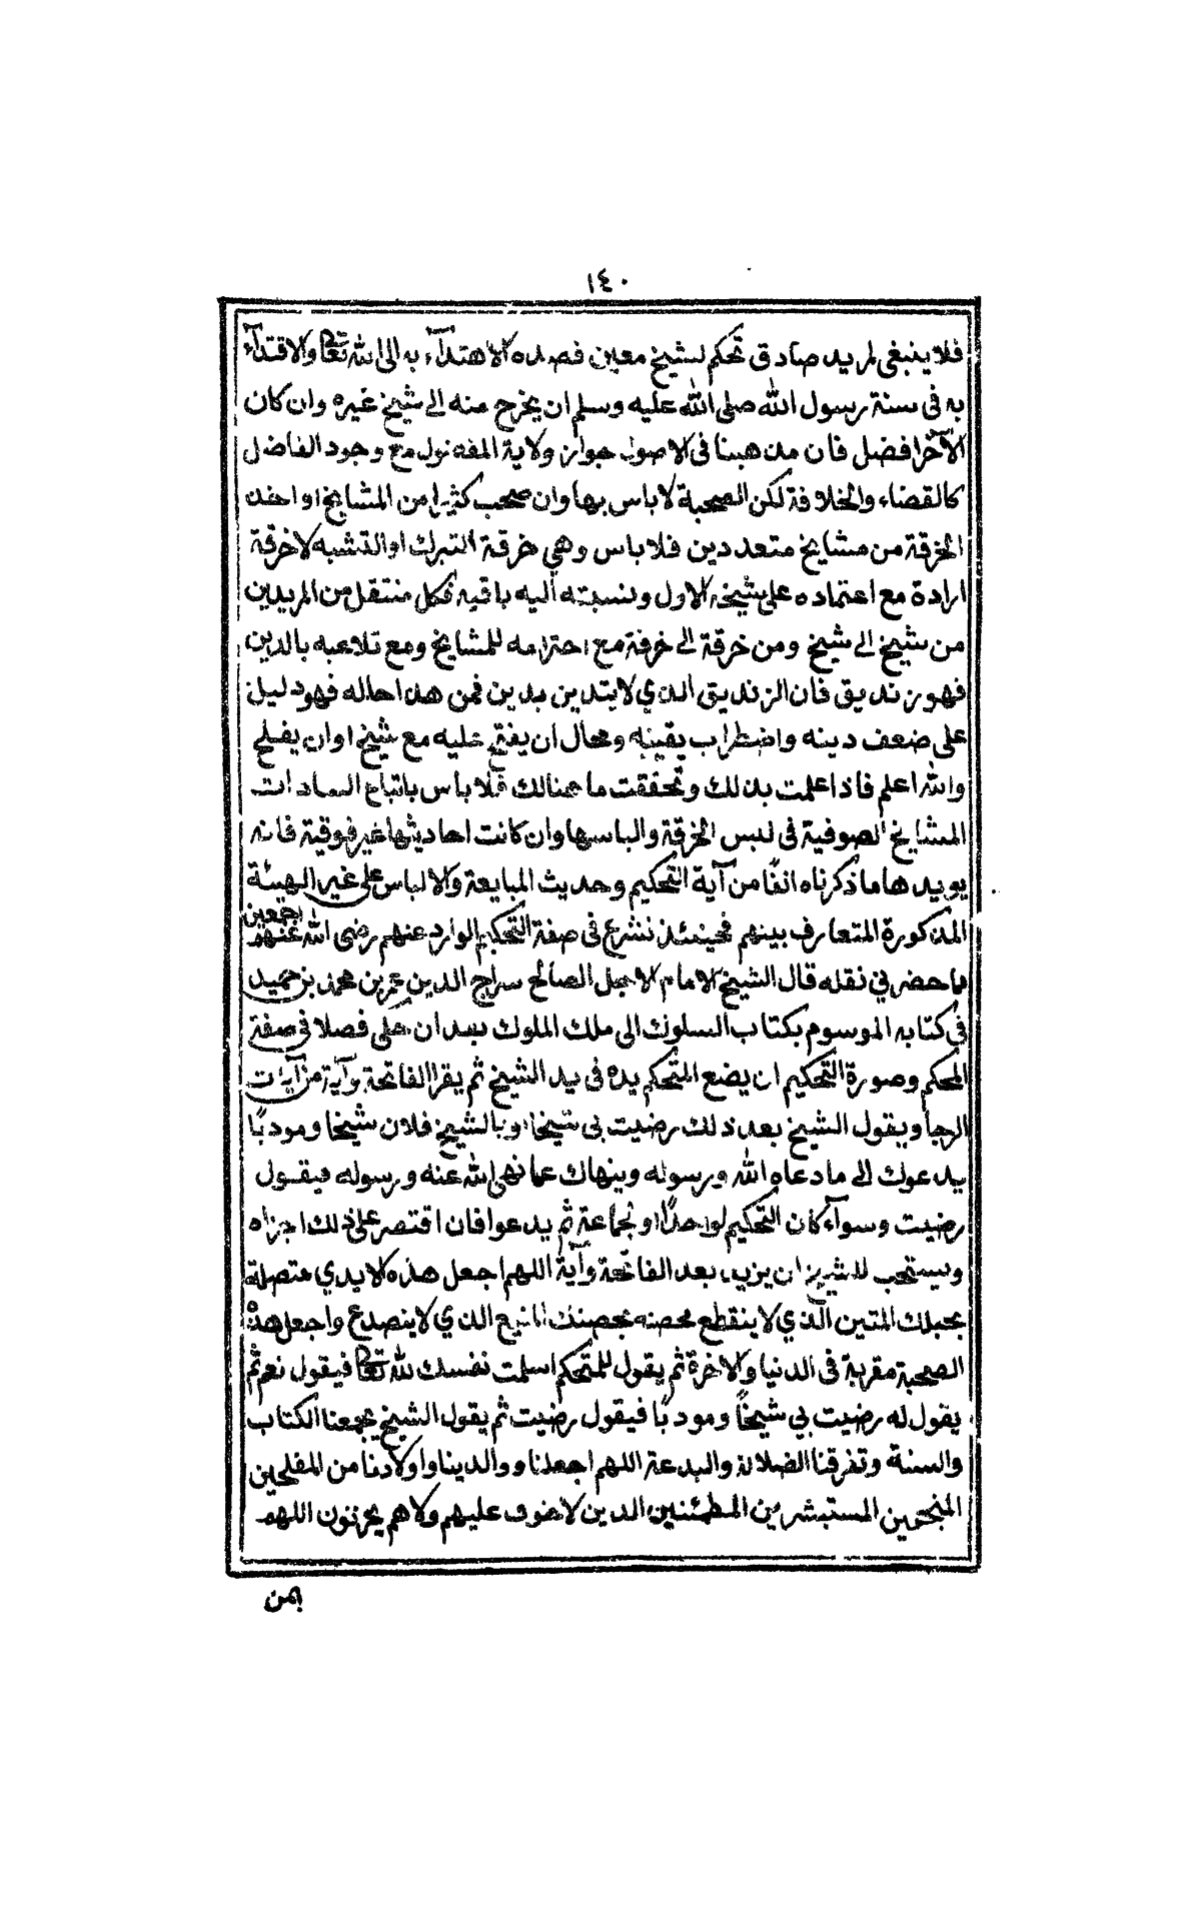 ١٤٠
فلا ينبغى لمريد صادق تحكم لشيخ معين قصده الاهتدآء به الى الله تعالى والاقتدآء
به فى سنة رسول الله صلى الله عليه وسلم ان يخرج منه الى شيخ غيره وان كان
الآخر افضل فان مذهبنا فى الاصول جواز ولاية المفضول مع وجود الفاضل
كالقضاء والخلافة لكن الصحبة لا باس بها وان صحب كثيرا من المشايخ او اخذ
الخرقة من مشايخ متعددين فلا باس وهي خرقة التبرك او التشبه لا خرقة
ارادة مع اعتماده على شيخه الاول ونسبته اليه باقيه فكل منتقل من المريدين
من شيخ الى شيخ ومن خرقة الى خرقة مع احترامه للمشايخ ومع تلاعبه بالدين
فهو زنديق فان الزنديق الذي لا يتدين بدين فمن هذا حاله فهو دليل
على ضعف دينه واضطراب يقينه ومحال ان يفتح عليه مع شيخ او ان يفلح
والله اعلم فاذا علمت بذلك وتحققت ما هنالك فلا باس باتباع السادات
المشايخ الصوفية فى لبس الخرقة والباسها وان كانت احاديثها غير قوية فانه
يويدها ما ذكرناه انفًا من آية التحكيم وحديث المبايعة والالباس على غير الهيئة
المذكورة المتعارف بينهم فحينئذ نشرع فى صفة التحكيم الوارد عنهم رضى الله عنهم اجمعين
بما حضرني نقله قال الشيخ الامام الاجل الصالح سراج الدين عمر بن محمد بن حميد
في كتابه الموسوم بكتاب السلوك الى ملك الملوك بعد ان حكى فصلا فى صفة
المحكم وصورة التحكيم ان يضع المتحكم يده فى يد الشيخ ثم يقرا الفاتحة وآية من آيات
الرجا ويقول الشيخ بعد ذلك رضيت بى شيخا او بالشيخ فلان شيخا ومودبًا
يدعوك الى ما دعاه الله ورسوله وينهاك عما نهى الله عنه ورسوله فيقول
رضيت وسوآء كان التحكيم لواحدًا او لجماعة ثم يدعو فان اقتصر على ذلك اجزاه
ويستحب للشيخ ان يزيد بعد الفاتحة وآية اللهم اجعل هذه الايدي متصلة
بحبلك المتين الذي لا ينقطع محصنه بحصنك المنيع الذي لا ينصدع واجعل هذه
الصحبة مقربة فى الدنيا والاخرة ثم يقول للمتحكم اسلمت نفسك لله تعالى فيقول نعم ثم
يقول له رضيت بي شيخًا ومودبًا فيقول رضيت ثم يقول الشيخ يجمعنا الكتاب
والسنة وتفرقنا الضلالة والبدعة اللهم اجعلنا ووالدينا واولادنا من المفلحين
المنجحين المستبشرين المطمئنين الذين لا خوف عليهم ولا هم يحزنون اللهم
بمن